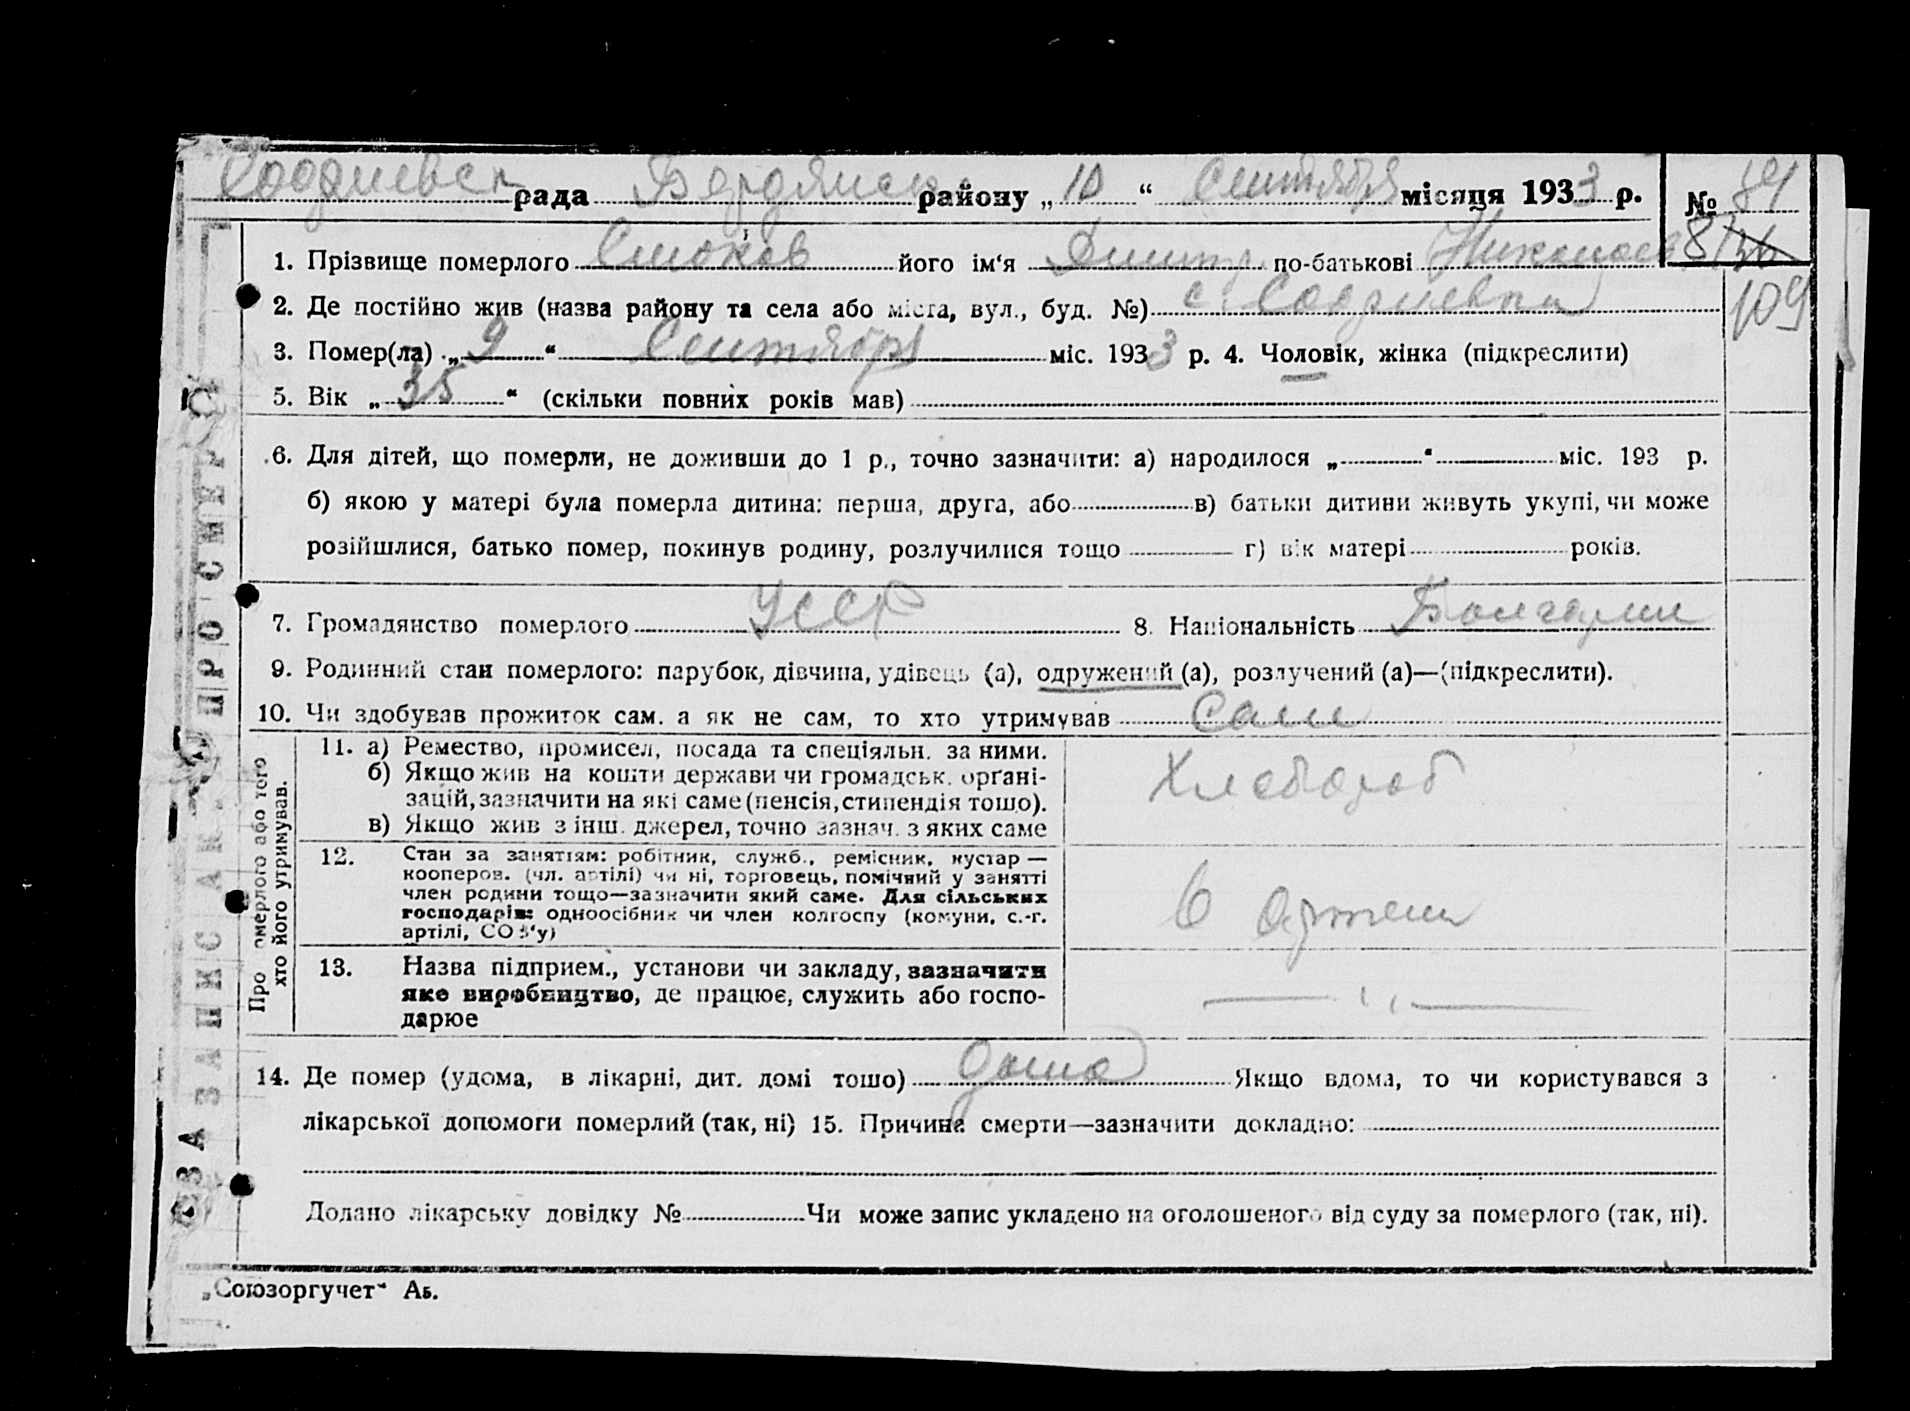 рада Бердянск району „ 10 “ Сентября місяця 1933 р. № 81
8 136
1. Прізвище померлого Стоков його ім‘я Дмитр по-батькові Николаев
109
2. Де постійно жив (назва району та села або міста, вул., буд. №) с.
3. Помер(ла) „ 9 “ Сентября міс. 1933 р. 4. Чоловік, жінка (підкреслити)
5. Вік „ 35 “ (скільки повних років мав)
6. Для дітей, що померли, не доживши до 1 р., точно зазначити: а) народилося „ “ міс. 193 р.
б) якою у матері була померла дитина: перша, друга, або в) батьки дитини живуть укупі, чи може
розійшлися, батько помер, покинув родину, розлучилися тощо г) вік матері років.
7. Громадянство померлого УССР 8. Національність Болгарин
9. Родинний стан померлого: парубок, дівчина, удівець (а), одружений (а), розлучений (а)—(підкреслити).
10. Чи здобував прожиток сам, а як не сам, то хто утримував Сам
Про померлого або того
хто його утримував.
11. а) Ремество, промисел, посада та спеціяльн. за ними.
б) Якщо жив на кошти держави чи громадськ. орґані-
зацій, зазначити на які саме (пенсія, стипендія тощо).
в) Якщо жив з інш. джерел, точно зазнач. з яких саме
Хлебороб
12. Стан за заняттям: робітник, служб., ремісник, кустар —
кооперов. (чл. артілі) чи ні, торговець, помічний у занятті
член родини тощо—зазначити який саме. Для сільських
господарів: одноосібник чи член колгоспу (комуни, с.-г.
артілі, СОЗ‘у)
В артели
13. Назва підприєм., установи чи закладу, зазначити
яке виробництво, де працює, служить або госпо-
дарює
— „ —
14. Де помер (удома, в лікарні, дит. домі тощо) дома Якщо вдома, то чи користувався з
лікарської допомоги померлий (так, ні) 15. Причина смерти—зазначити докладно:
Додано лікарську довідку № Чи може запис укладено на оголошеного від суду за померлого (так, ні).
„Союзоргучет“ Аб.
ЗАПИС АКТУ ПРО СМЕРТЬ